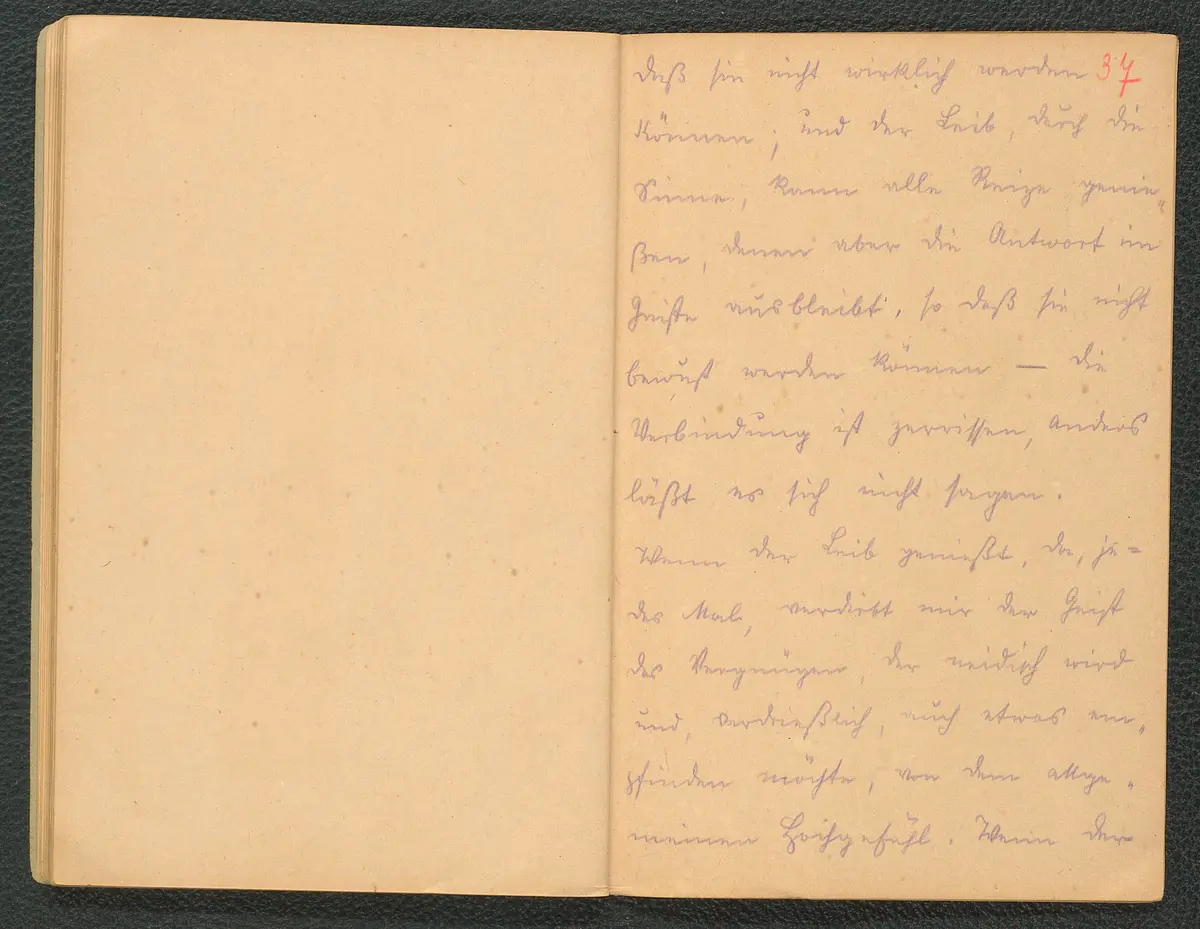 daß sie nicht wirklich werden 37
können; und der Leib, durch die
Sinne, kann alle Reize genie-
ßen, denen aber die Antwort im
Geiste ausbleibt, so daß sie nicht
bewußt werden können — die
Verbindung ist zerrissen, anders
läßt es sich nicht sagen.
Wenn der Leib genießt, da, je-
des Mal, verdirbt mir der Geist
das Vergnügen, der neidisch wird
und, verdrießlich, auch etwas em-
pfinden möchte, von dem allge-
meinen Hochgefühl. Wenn der